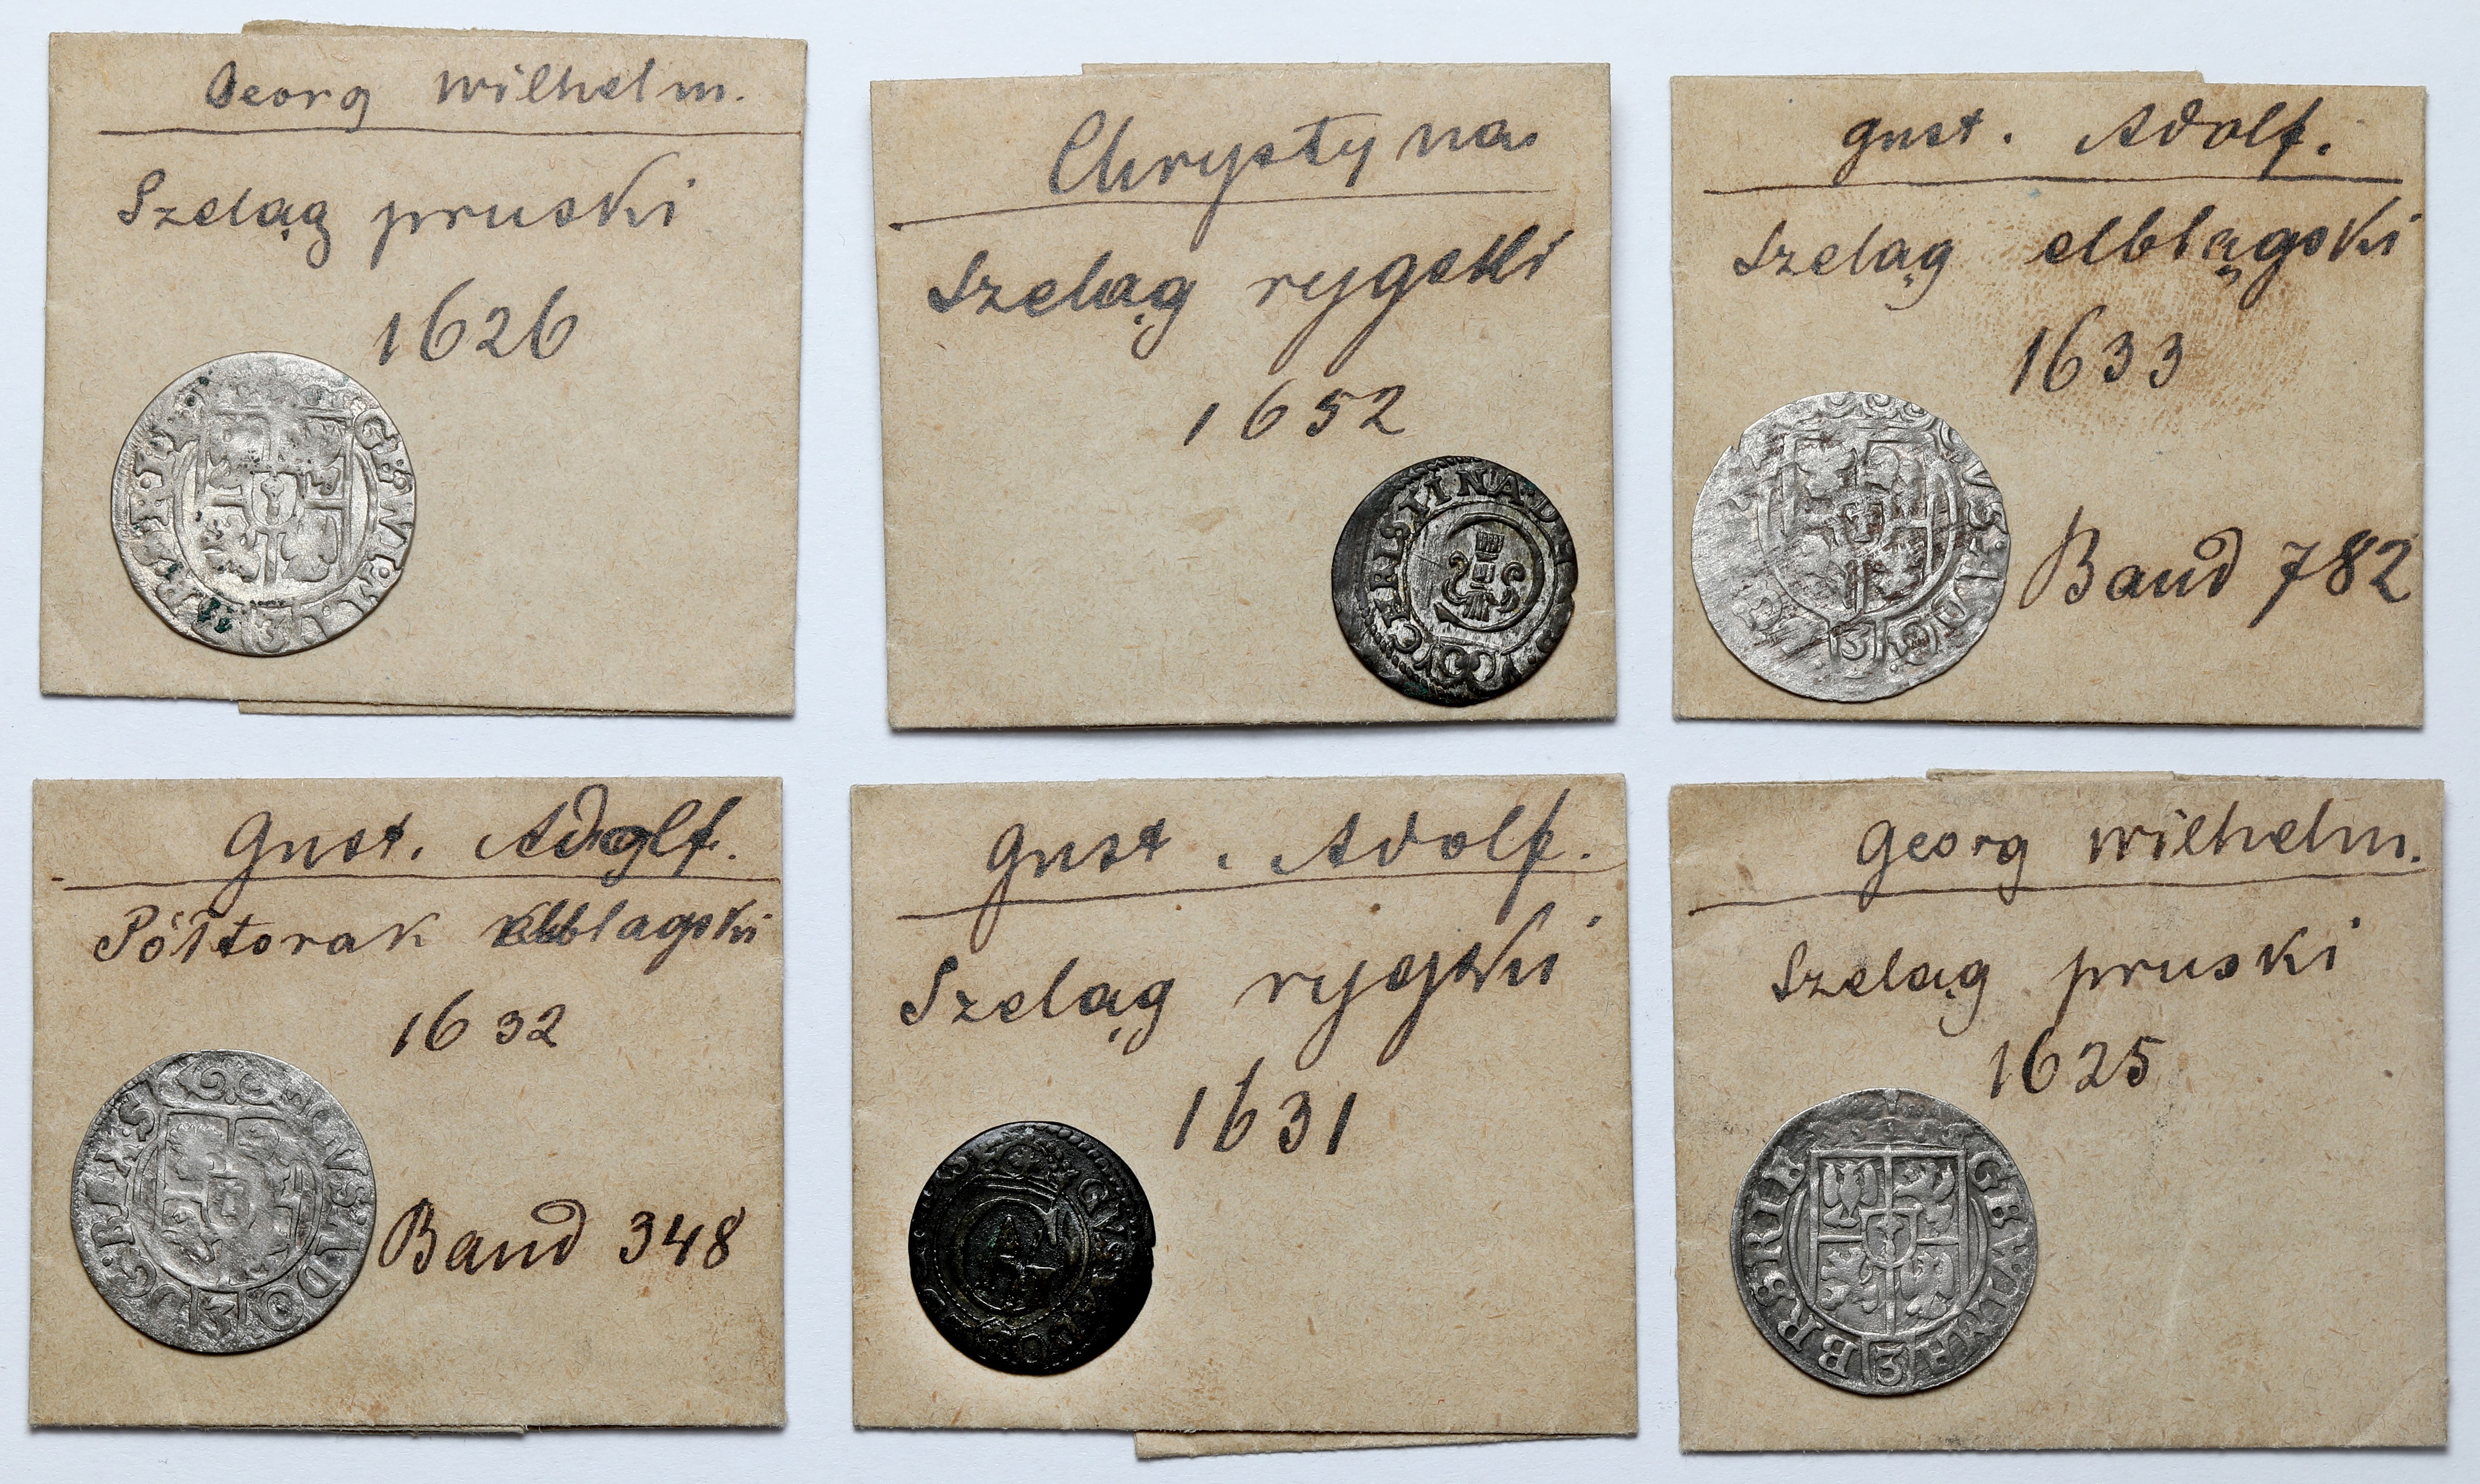 Georg Wilhelm.
Szeląg pruski
1626
3
Chrystyna
Szeląg rygski
1652
gust. Adolf.
Szeląg elblągski
1633
Band 782
3
Gust. Adolf.
Półtorak elblagski
1632
Band 348
3
Gust. Adolf.
Szeląg rygski
1631
Georg Wilhelm.
Szeląg pruski
1625
3